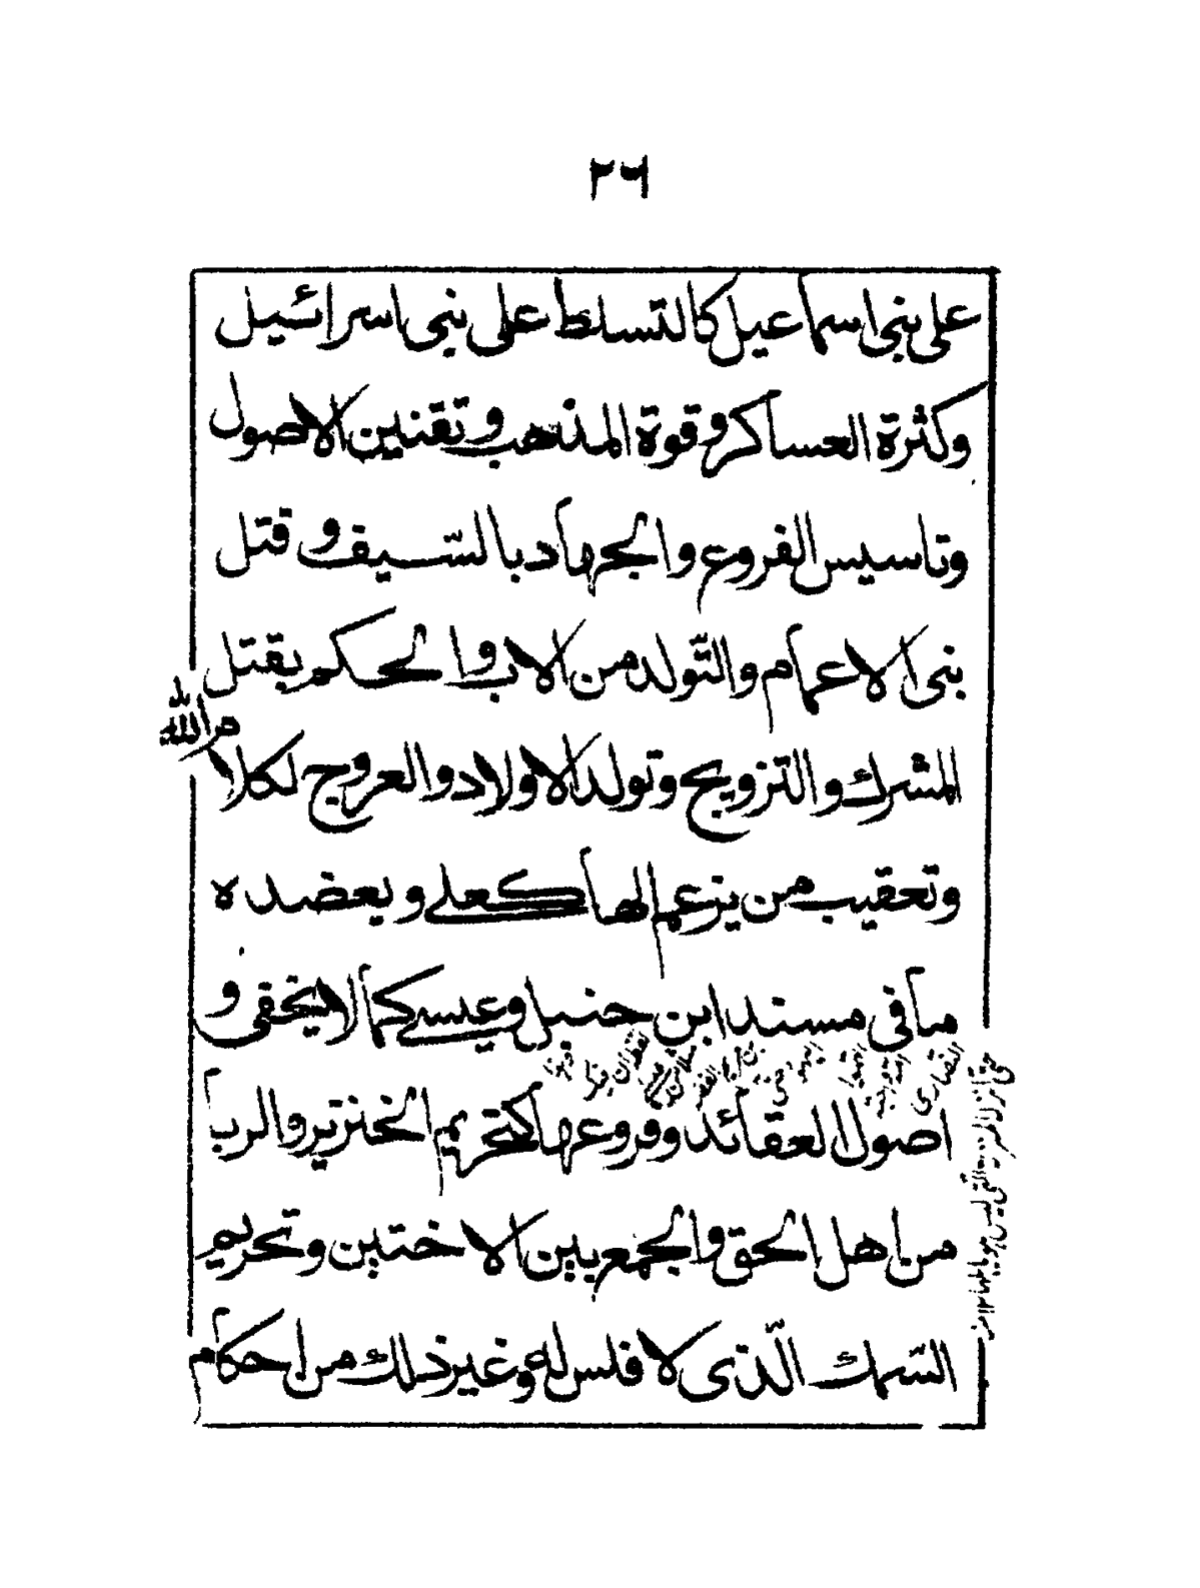 ٢٦
على بنى اسماعيل كالتسلط على بنى اسرائيل
وكثرة العساكر وقوة المذهب وتقنين الاصول
وتاسيس الفروع والجهاد بالسّيف وقتل
بنى الاعمام والتّولد من الاب والحكم بقتل
المشرك والتزويج وتولد الاولاد والعروج لكلام الله
وتعقيب من يزعم الها كعلي ويعضده
ما فى مسند ابن حنبل وعيسے كما لا يخفى و
اصول العقائد وفروعها كتحريم الخنزير والربا
من اهل الحق والجمع بين الاختين وتحريم
السّمك الّذى لا فلس له وغير ذلك من احكام